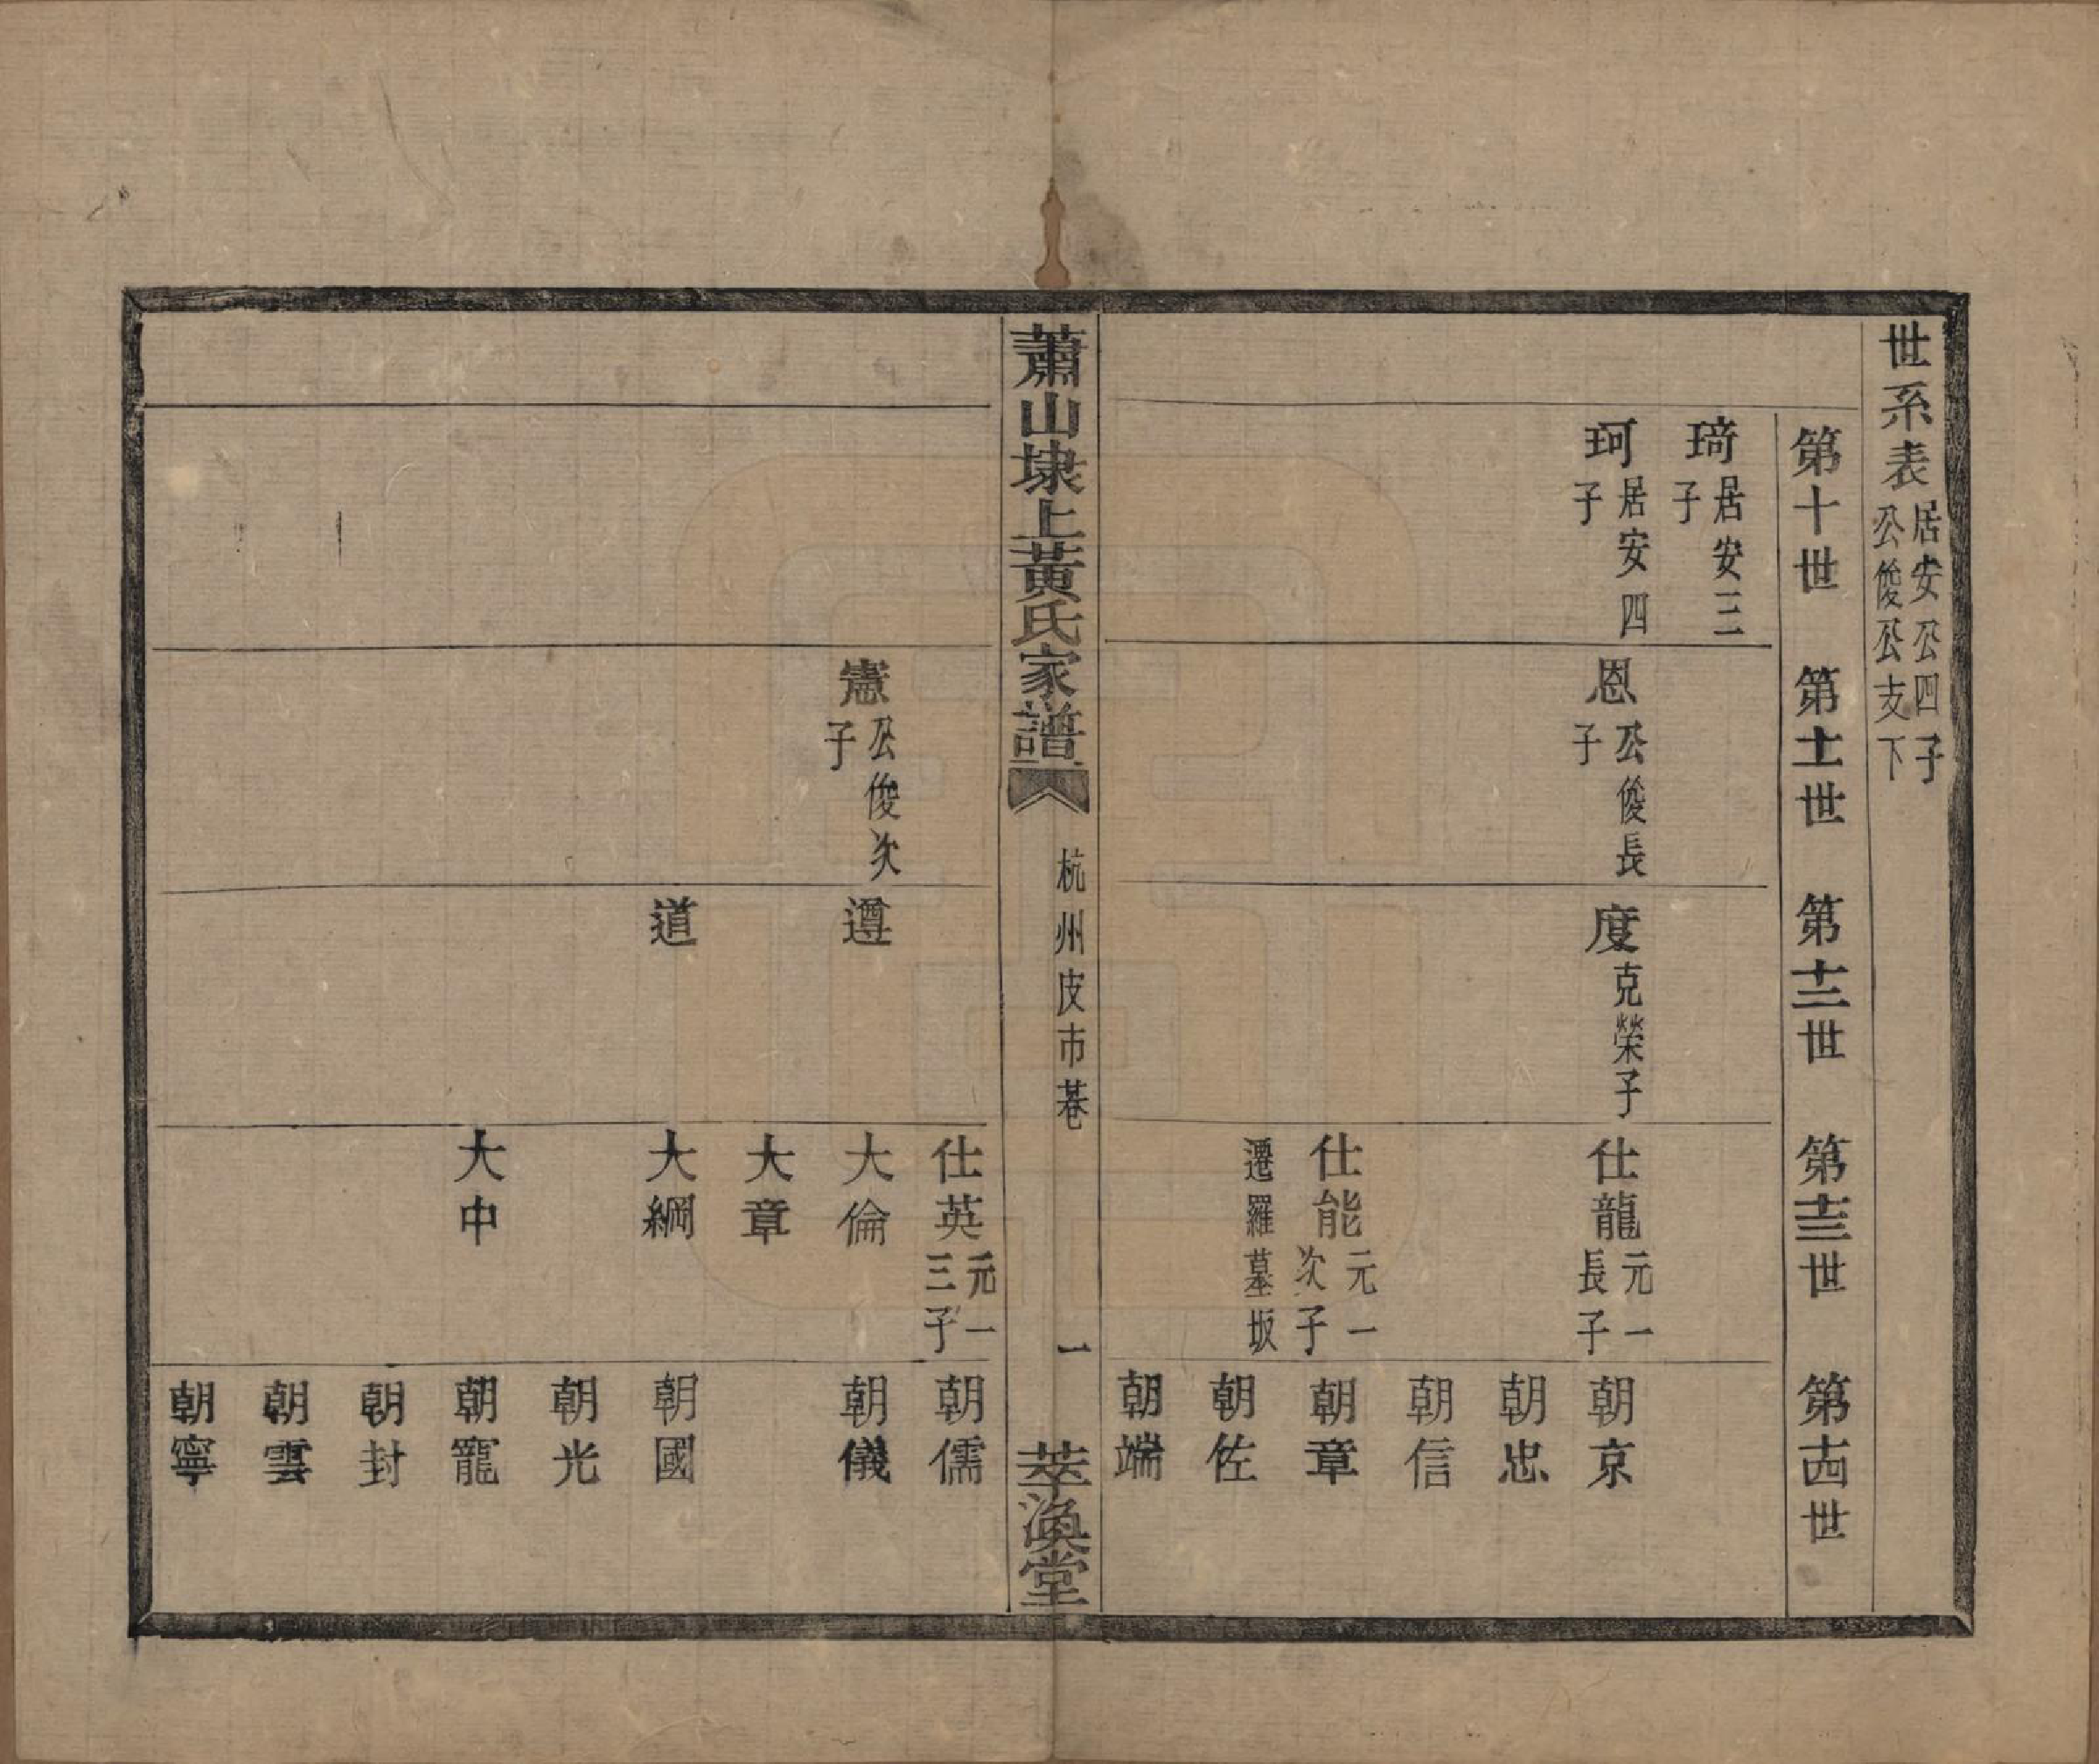 世系表居安公四子公俊公支下
第十世
第十一世
第十二世
第十三世
第十四世
琦居安三子
珂居安四子
恩公俊長子
度克榮子
仕龍元一長子
朝京
朝忠
朝信
仕能元一次子
遷羅墓坂
朝章
朝佐
朝端
蕭山埭上黃氏家譜
杭州皮市巷
一
萃渙堂
仕英元一三子
朝儒
憲公俊次子
遵
大倫
朝儀
大章
道
大綱
朝國
朝光
大中
朝寵
朝封
朝雲
朝寧